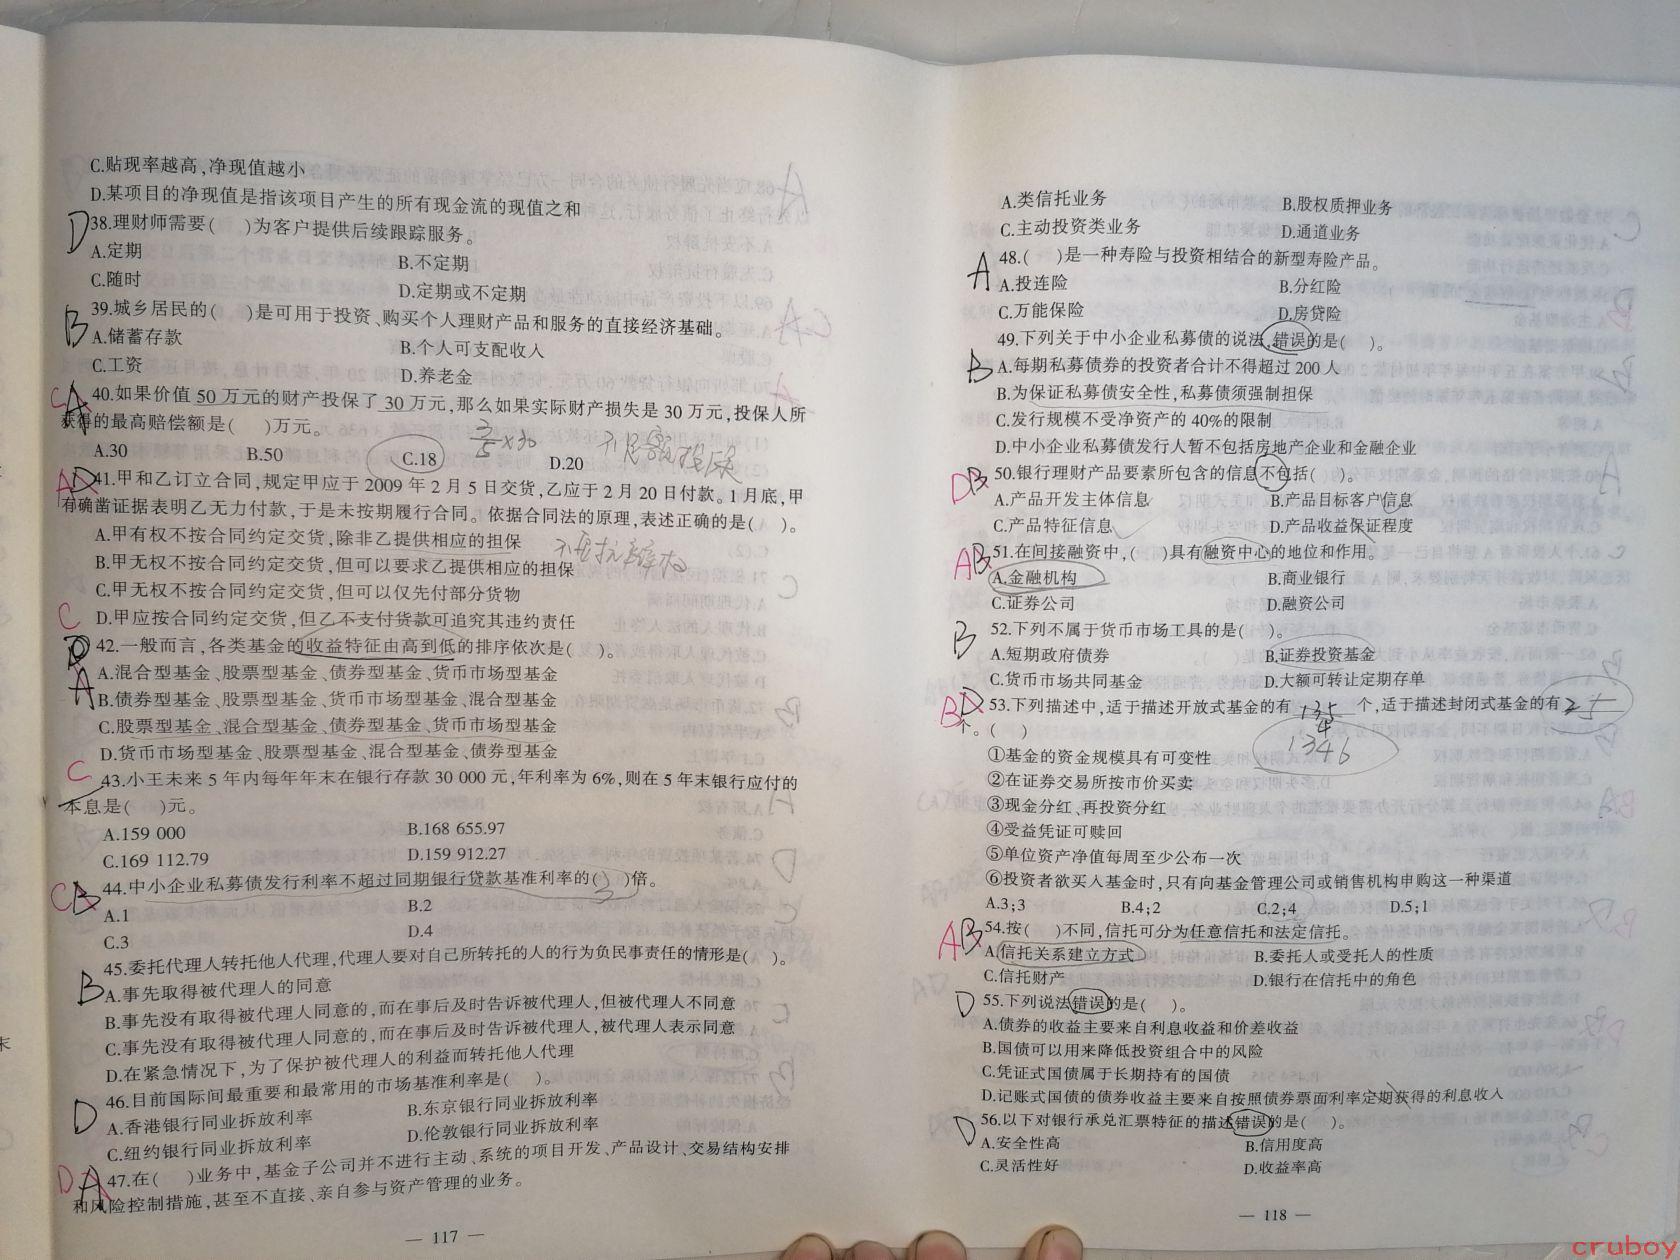 C.贴现率越高,净现值越小
D.某项目的净现值是指该项目产生的所有现金流的现值之和
D
38.理财师需要(　)为客户提供后续跟踪服务。
A.定期
B.不定期
C.随时
D.定期或不定期
39.城乡居民的(　)是可用于投资、购买个人理财产品和服务的直接经济基础。
B
A.储蓄存款
B.个人可支配收入
C.工资
D.养老金
C A
40.如果价值 50 万元的财产投保了 30 万元,那么如果实际财产损失是 30 万元,投保人所
获得的最高赔偿额是(　)万元。
A.30
B.50
C.18
D.20
3/5×30
不足额投保
A D
41.甲和乙订立合同,规定甲应于 2009 年 2 月 5 日交货,乙应于 2 月 20 日付款。1 月底,甲
有确凿证据表明乙无力付款,于是未按期履行合同。依据合同法的原理,表述正确的是(　)。
A.甲有权不按合同约定交货,除非乙提供相应的担保
不安抗辩权
B.甲无权不按合同约定交货,但可以要求乙提供相应的担保
C.甲无权不按合同约定交货,但可以仅先付部分货物
D.甲应按合同约定交货,但乙不支付货款可追究其违约责任
C
42.一般而言,各类基金的收益特征由高到低的排序依次是(　)。
A.混合型基金、股票型基金、债券型基金、货币市场型基金
A
B.债券型基金、股票型基金、货币市场型基金、混合型基金
C.股票型基金、混合型基金、债券型基金、货币市场型基金
D.货币市场型基金、股票型基金、混合型基金、债券型基金
C
43.小王未来 5 年内每年年末在银行存款 30 000 元,年利率为 6%,则在 5 年末银行应付的
本息是(　)元。
A.159 000
B.168 655.97
C.169 112.79
D.159 912.27
C B
44.中小企业私募债发行利率不超过同期银行贷款基准利率的( 3 )倍。
A.1
B.2
C.3
D.4
45.委托代理人转托他人代理,代理人要对自己所转托的人的行为负民事责任的情形是(　)。
B
A.事先取得被代理人的同意
B.事先没有取得被代理人同意的,而在事后及时告诉被代理人,但被代理人不同意
C.事先没有取得被代理人同意的,而在事后及时告诉被代理人,被代理人表示同意
D.在紧急情况下,为了保护被代理人的利益而转托他人代理
46.目前国际间最重要和最常用的市场基准利率是(　)。
D
A.香港银行同业拆放利率
B.东京银行同业拆放利率
C.纽约银行同业拆放利率
D.伦敦银行同业拆放利率
D A
47.在(　)业务中,基金子公司并不进行主动、系统的项目开发、产品设计、交易结构安排
和风险控制措施,甚至不直接、亲自参与资产管理的业务。
— 117 —
A.类信托业务
B.股权质押业务
C.主动投资类业务
D.通道业务
A
48.(　)是一种寿险与投资相结合的新型寿险产品。
A.投连险
B.分红险
C.万能保险
D.房贷险
49.下列关于中小企业私募债的说法,错误的是(　)。
B
A.每期私募债券的投资者合计不得超过 200 人
B.为保证私募债安全性,私募债须强制担保
C.发行规模不受净资产的 40%的限制
D.中小企业私募债发行人暂不包括房地产企业和金融企业
D B
50.银行理财产品要素所包含的信息不包括(　)。
A.产品开发主体信息
B.产品目标客户信息
C.产品特征信息
D.产品收益保证程度
A B
51.在间接融资中,(　)具有融资中心的地位和作用。
A.金融机构
B.商业银行
C.证券公司
D.融资公司
B
52.下列不属于货币市场工具的是(　)。
A.短期政府债券
B.证券投资基金
C.货币市场共同基金
D.大额可转让定期存单
B D
53.下列描述中,适于描述开放式基金的有 135 个,适于描述封闭式基金的有 25
个。(　)
4
1346
①基金的资金规模具有可变性
②在证券交易所按市价买卖
③现金分红、再投资分红
④受益凭证可赎回
⑤单位资产净值每周至少公布一次
⑥投资者欲买入基金时,只有向基金管理公司或销售机构申购这一种渠道
A.3;3
B.4;2
C.2;4
D.5;1
A B
54.按(　)不同,信托可分为任意信托和法定信托。
A.信托关系建立方式
B.委托人或受托人的性质
C.信托财产
D.银行在信托中的角色
D
55.下列说法错误的是(　)。
A.债券的收益主要来自利息收益和价差收益
B.国债可以用来降低投资组合中的风险
C.凭证式国债属于长期持有的国债
D.记账式国债的债券收益主要来自按照债券票面利率定期获得的利息收入
D
56.以下对银行承兑汇票特征的描述错误的是(　)。
A.安全性高
B.信用度高
C.灵活性好
D.收益率高
— 118 —
cruboy